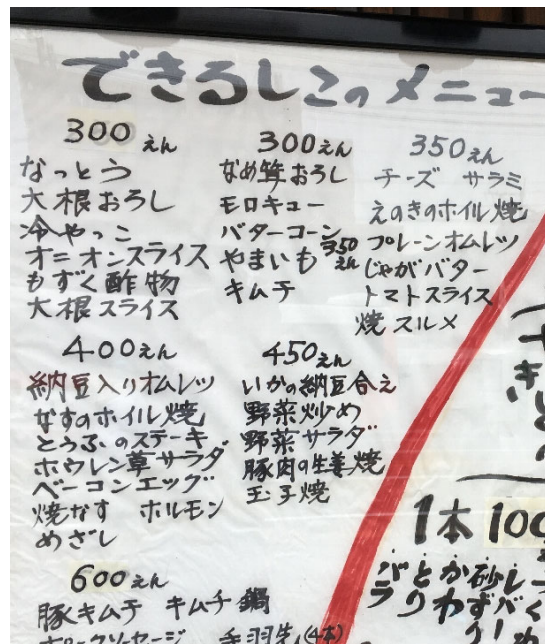 できるしこのメニュー
300えん
なっとう
大根おろし
冷やっこ
オニオンスライス
もずく酢物
大根スライス
300えん
なめ茸おろし
モロキュー
バターコーン
やまいも 350えん
キムチ
350えん
チーズ サラミ
えのきのホイル焼
プレーンオムレツ
じゃがバター
トマトスライス
焼スルメ
400えん
納豆入りオムレツ
なすのホイル焼
とうふのステーキ
ホウレン草サラダ
ベーコンエッグ
焼なす ホルモン
めざし
450えん
いかの納豆合え
野菜炒め
野菜サラダ
豚肉の生姜焼
玉子焼
600えん
豚キムチ キムチ鍋
ポークソーセージ 手羽先(4本)
1本100
バラ
とり
かわ
砂ずり